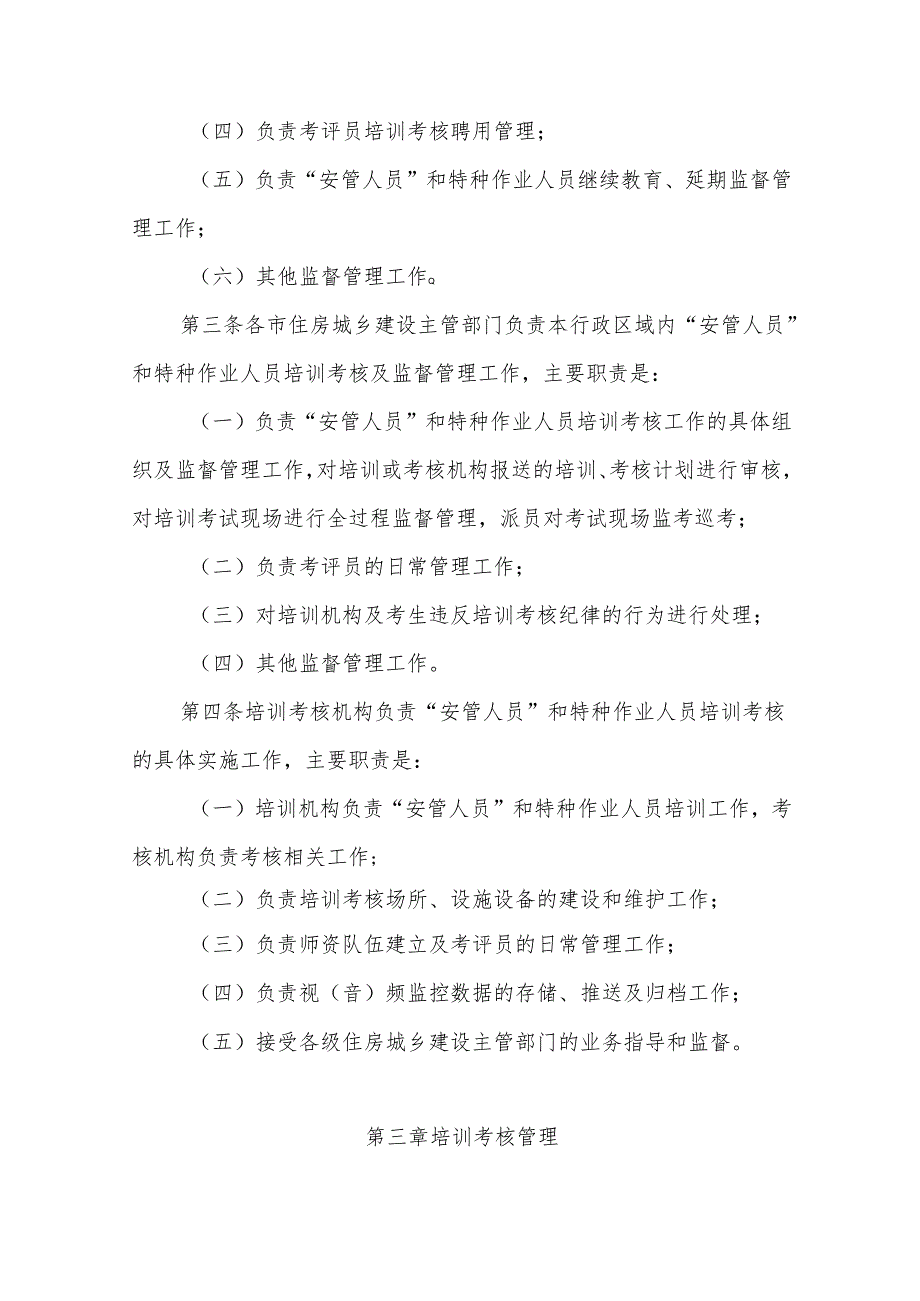 （四）负责考评员培训考核聘用管理；
（五）负责“安管人员”和特种作业人员继续教育、延期监督管
理工作；
（六）其他监督管理工作。
第三条各市住房城乡建设主管部门负责本行政区域内“安管人员”
和特种作业人员培训考核及监督管理工作，主要职责是：
（一）负责“安管人员”和特种作业人员培训考核工作的具体组
织及监督管理工作，对培训或考核机构报送的培训、考核计划进行审核，
对培训考试现场进行全过程监督管理，派员对考试现场监考巡考；
（二）负责考评员的日常管理工作；
（三）对培训机构及考生违反培训考核纪律的行为进行处理；
（四）其他监督管理工作。
第四条培训考核机构负责“安管人员”和特种作业人员培训考核
的具体实施工作，主要职责是：
（一）培训机构负责“安管人员”和特种作业人员培训工作，考
核机构负责考核相关工作；
（二）负责培训考核场所、设施设备的建设和维护工作；
（三）负责师资队伍建立及考评员的日常管理工作；
（四）负责视（音）频监控数据的存储、推送及归档工作；
（五）接受各级住房城乡建设主管部门的业务指导和监督。
第三章培训考核管理